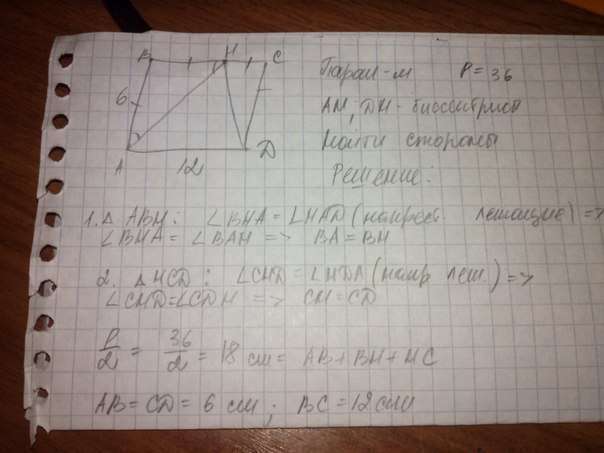 B H C
Парал-м P = 36
6
AH; DH - биссектриса
Найти стороны
A 12 D
Решение:
1. △ ABH: ∠BHA = ∠HAD (накрест. лежащие) =>
∠BHA = ∠BAH => BA = BH
2. △HCD: ∠CHD = ∠HDA (накр. леж.) =>
∠CHD = ∠CDH => CH = CD
P/2 = 36/2 = 18 см = AB + BH + HC
AB = CD = 6 см; BC = 12 см